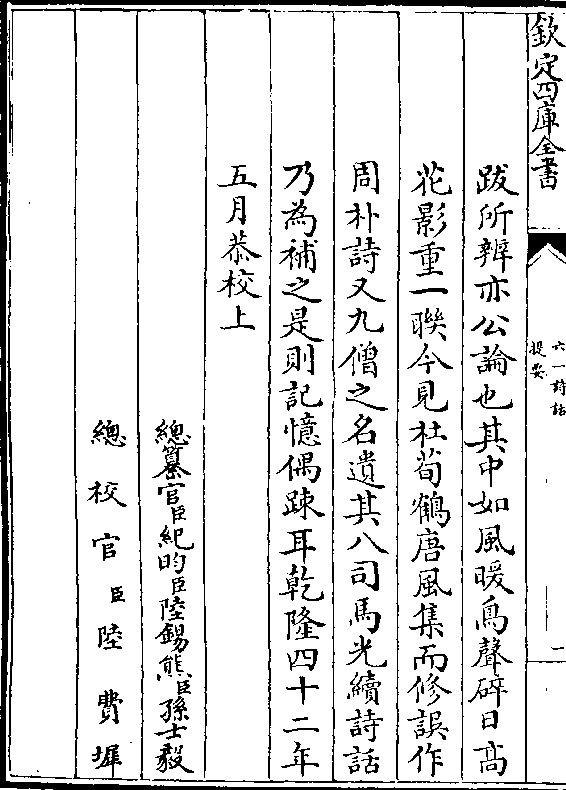 欽定四庫全書
六一詩話
提要
二
跋所辨亦公論也其中如風暖鳥聲碎日高
花影重一聯今見杜荀鶴唐風集而修誤作
周朴詩又九僧之名遺其八司馬光續詩話
乃為補之是則記憶偶踈耳乾隆四十二年
五月恭校上
總纂官臣紀昀臣陸錫熊臣孫士毅
總校官臣陸費墀